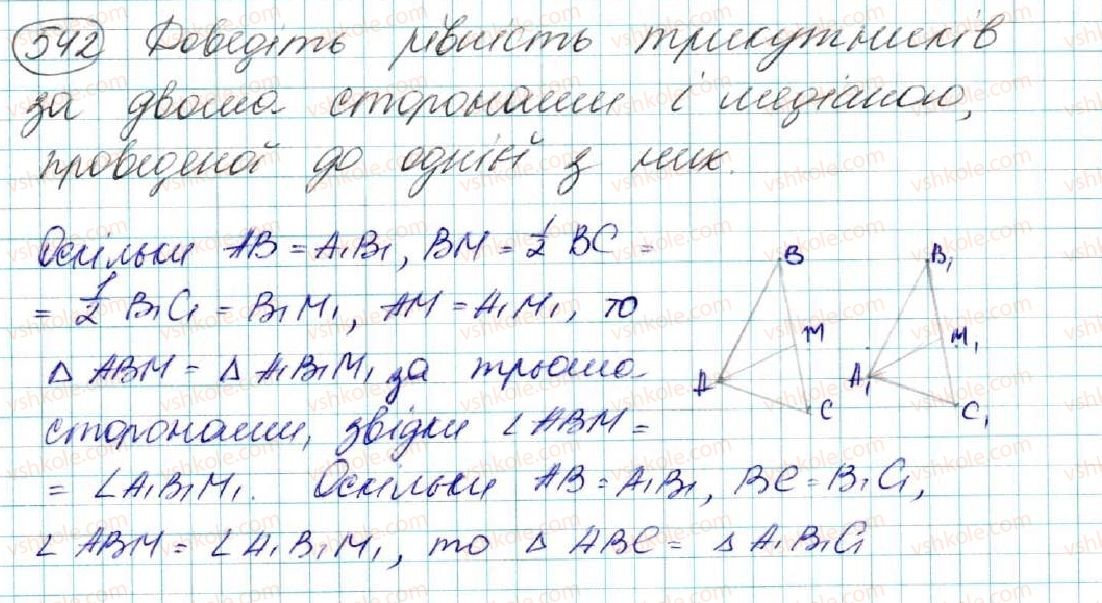 542 Доведіть рівність трикутників
за двома сторонами і медіаною,
проведеної до одніїї з них.
Оскільки AB = A₁B₁, BM = 1/2 BC =
= 1/2 B₁C₁ = B₁M₁, AM = A₁M₁, то
△ ABM = △ A₁B₁M₁ за трьома
сторонами, звідки ∠ABM =
= ∠A₁B₁M₁. Оскільки AB = A₁B₁, BC = B₁C₁,
∠ ABM = ∠ A₁B₁M₁, то △ ABC = △ A₁B₁C₁
B B₁
M M₁
A A₁
C C₁
vshkole.com